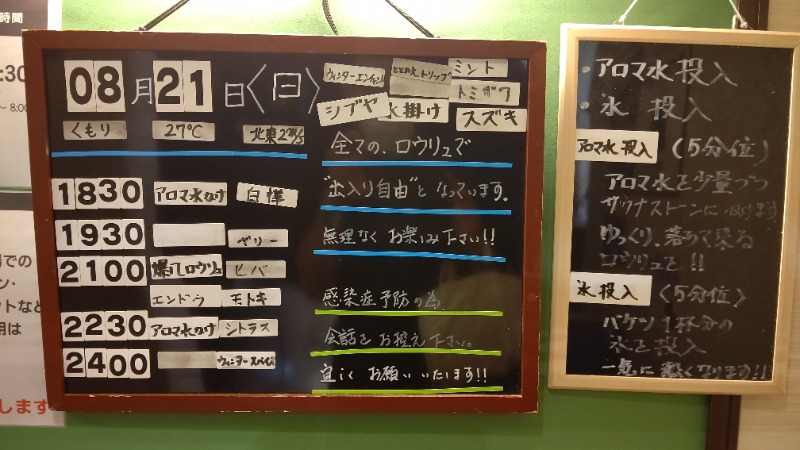 時間
:30
~ 8:00
場での
用は
します
08月21日〈日〉
くもり 27℃
ととのえトリップ ミント
トミザワ
シブヤ 水掛け スズキ
1830 アロマ水かけ 白樺
1930 ベリー
2100 爆汗ロウリュ ヒバ
エンドウ モトキ
2230 アロマ水かけ シトラス
2400
全ての、ロウリュで
"出入り自由"となっています。
無理なくお楽しみ下さい!!
感染症予防の為、
会話をお控え下さい。
宜しくお願いいたします!!
・アロマ水投入
・氷 投入
アロマ水投入 (5分位)
アロマ水を少量づつ
サウナストーンに
ゆっくり、落ちて来る
ロウリュを!!
氷投入 〈5分位〉
バケツ1杯分の
氷を投入
一気に熱くなります!!